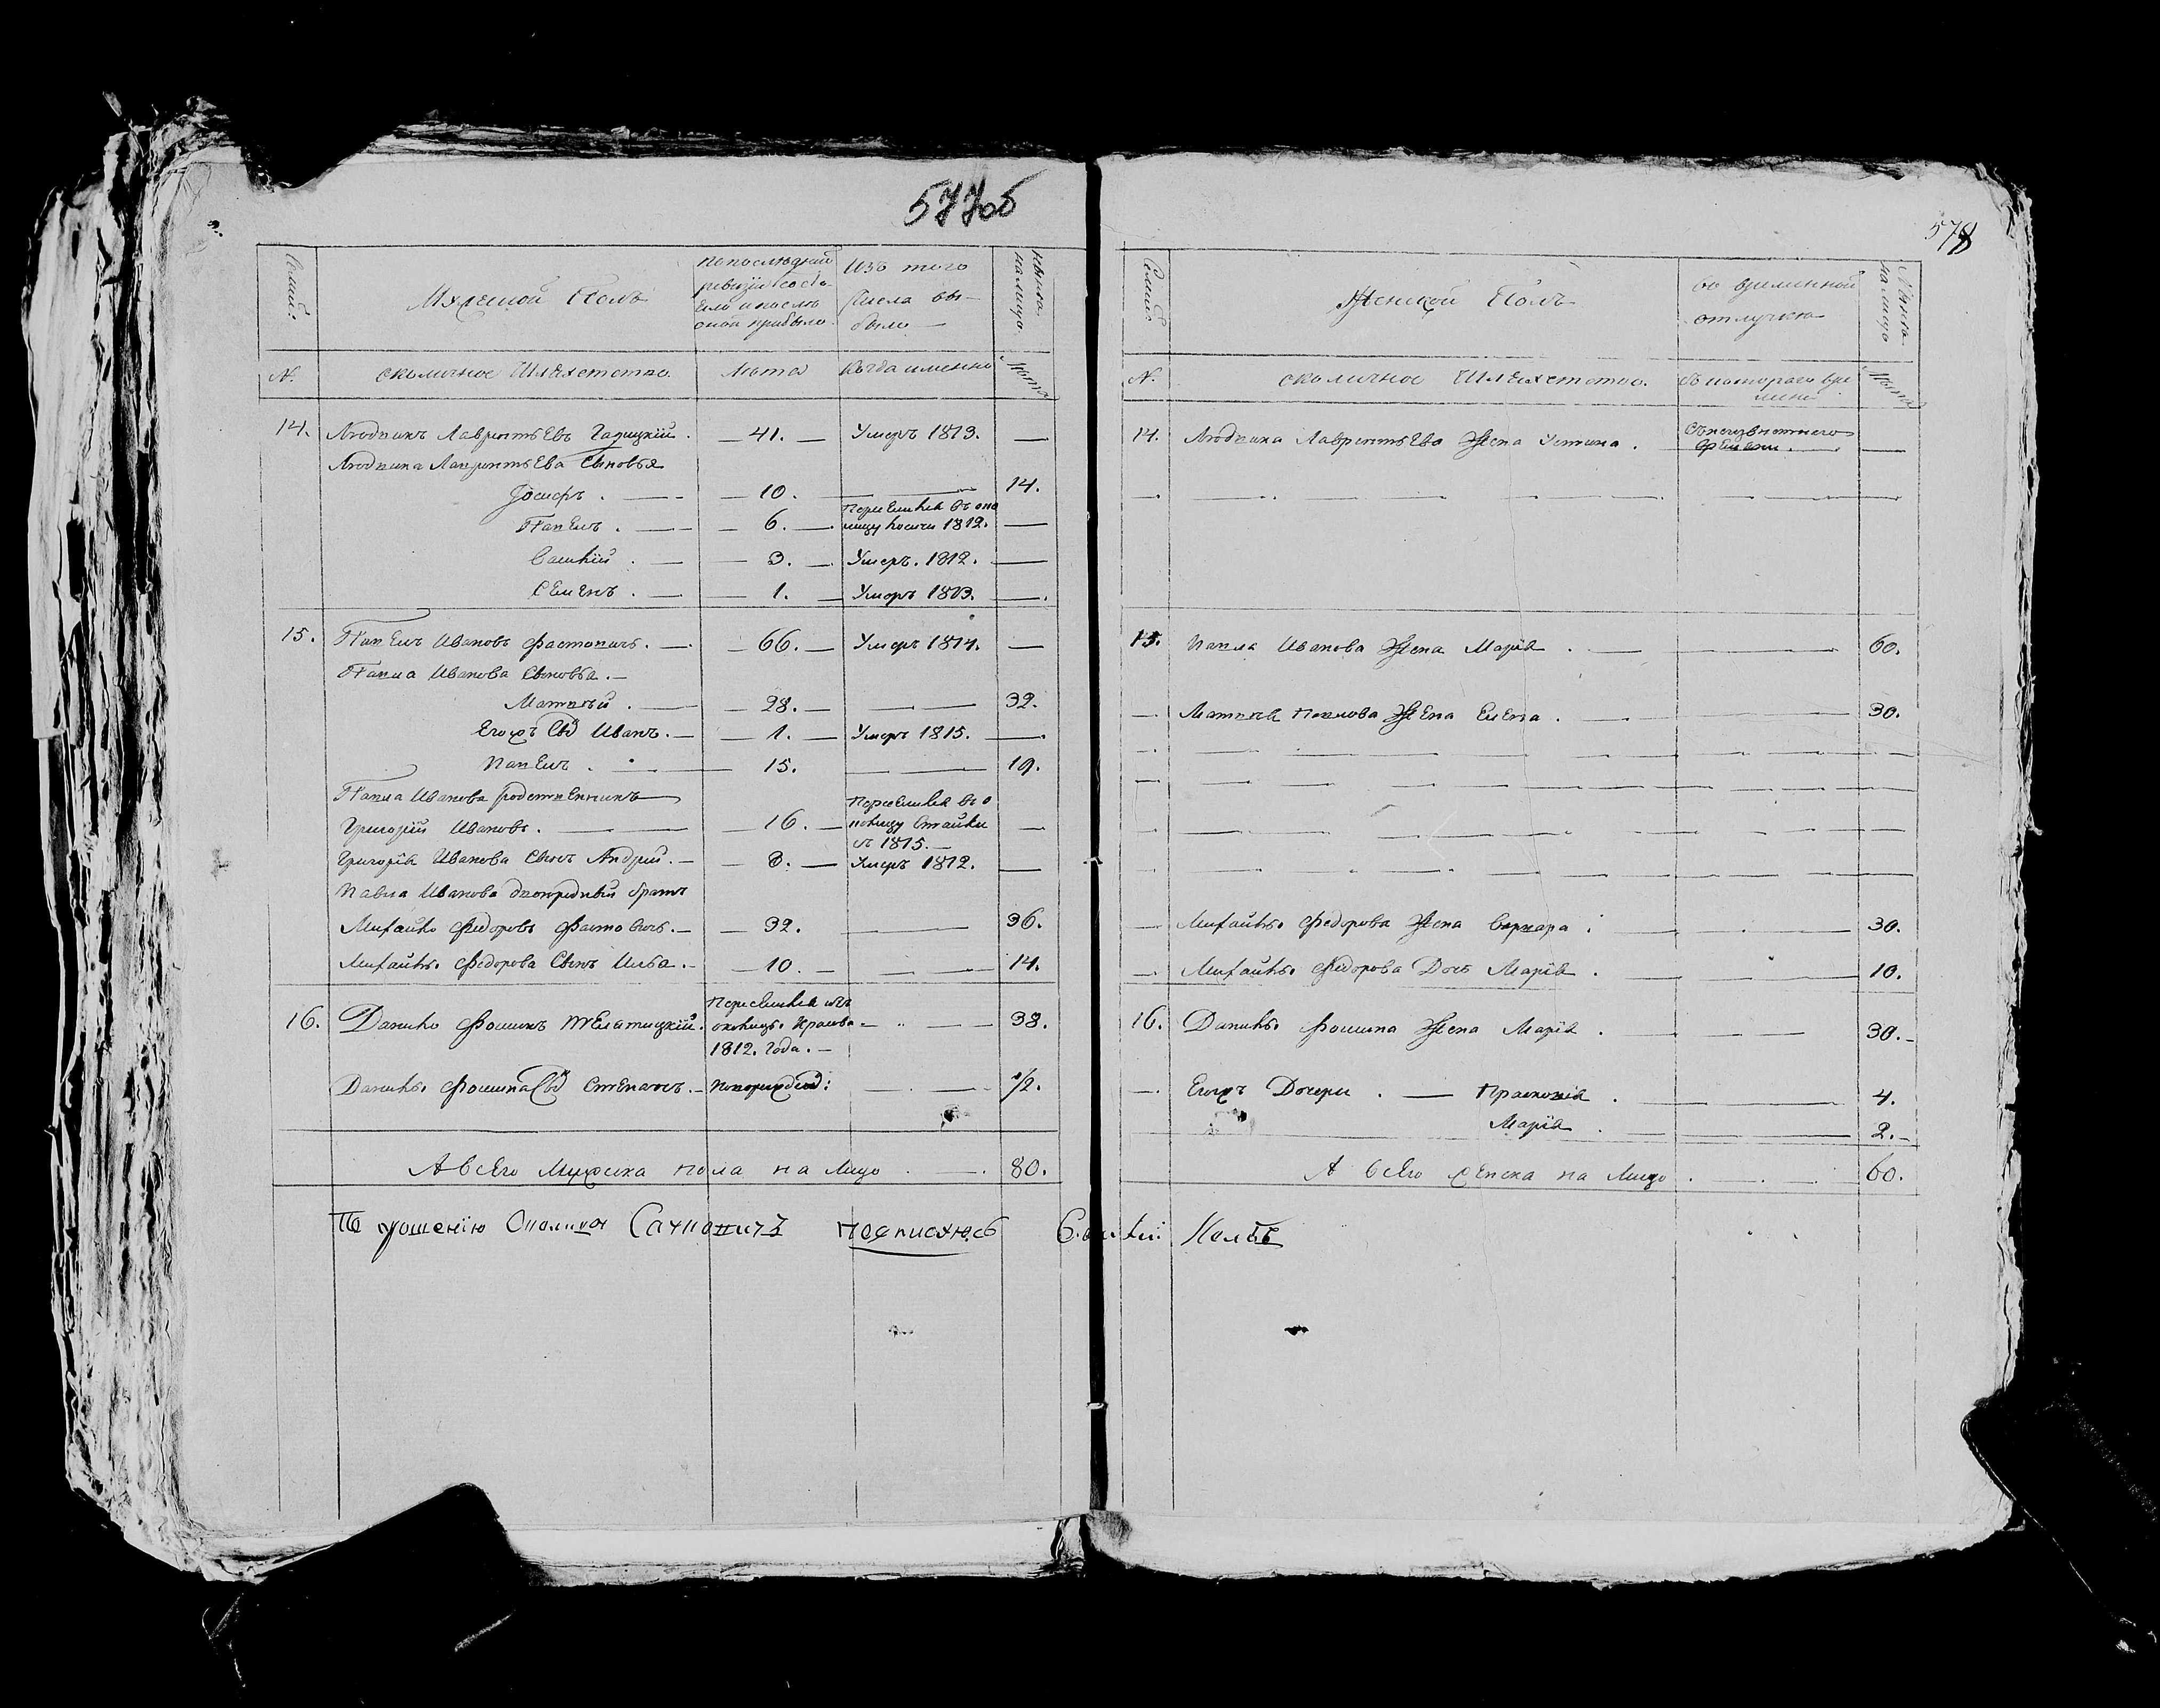 577об
Семьи.
Мужеской Полъ
по последней
ревизіи состо-
яло и после
оной прибыло.
Изъ того
числа вы-
было
ныне
на лицо.
№.
околичное Шляхетство.
Лета
Когда именно
Лета
14. Людвикъ Лаврентьевъ Галицкій. — 41. — Умеръ 1813. —
Людвика Лаврентьева Сыновья
Іосифъ . — — 10. — 14.
Павелъ . — — 6. — Переселился въ око
лицу 1812. —
Василій . — — 3. — Умеръ. 1812. —
Семенъ . — — 1. — Умеръ 1813. —.
15. Павелъ Ивановъ Фастовичъ. — — 66. — Умеръ 1814. —
Павла Иванова Сыновья. —
Матвей . — — 28. — — 32.
Егожъ Сынъ Иванъ. — — 1. — Умеръ 1815. —
Павелъ . — 15. — 19.
Павла Иванова родственникъ
Григорій Ивановъ. — — 16. — Переселился въ о
колицу Стайки
въ 1815. — —
Григорія Иванова Сынъ Андрей. — — 8. — Умеръ 1812. —
Павла Иванова двоюродный братъ
Михайло Федоровъ Фастовичъ. — — 32. — 36.
Михайлы Федорова Сынъ Илья. — — 10. — — 14.
16. Данило Фоминъ Телятицкій. Переселился изъ
околицы
1812. Года. — — 38.
Данилы Фомина Сынъ Степанъ. — новорожден: — 1/2.
А всего Мужска пола на Лицо . — . 80.
По прошенію подписуюсь
578
Семьи
Женской Полъ
во временной
отлучке
Ныне
на лицо
№.
околичное Шляхетство.
съ котораго вре
мени
Лета
14. Людвика Лаврентьева Жена Устина . съ неизвестнаго
времени. —
15. Павла Иванова Жена Марія . — — 60.
— Матвея Павлова Жена Елена . — — 30.
— Михайлы Федорова Жена Варвара . — 30.
— Михайлы Федорова Дочь Марія . — 10.
16. Данилы Фомина Жена Марія . — 30. –
— Егожъ Дочери . — Прасковія . — 4.
Марія . — 2. –
А всего женска на Лицо . — . 60.